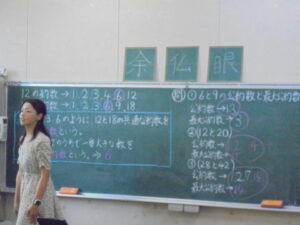 余仏眼
12の約数→1.2.3.4.6.12
約数→1.2.3.6.9.18
3.6のように 12と18の共通な約数を
という。
のうちで一番大きな数を
という。→6
問①6と9の公約数と最大公約数
公約数→1.3
最大公約数→3
②(12と20)
公約数→
最大公約数→4
③(28と42)
公約数→1.2.7.14
最大公約数→14